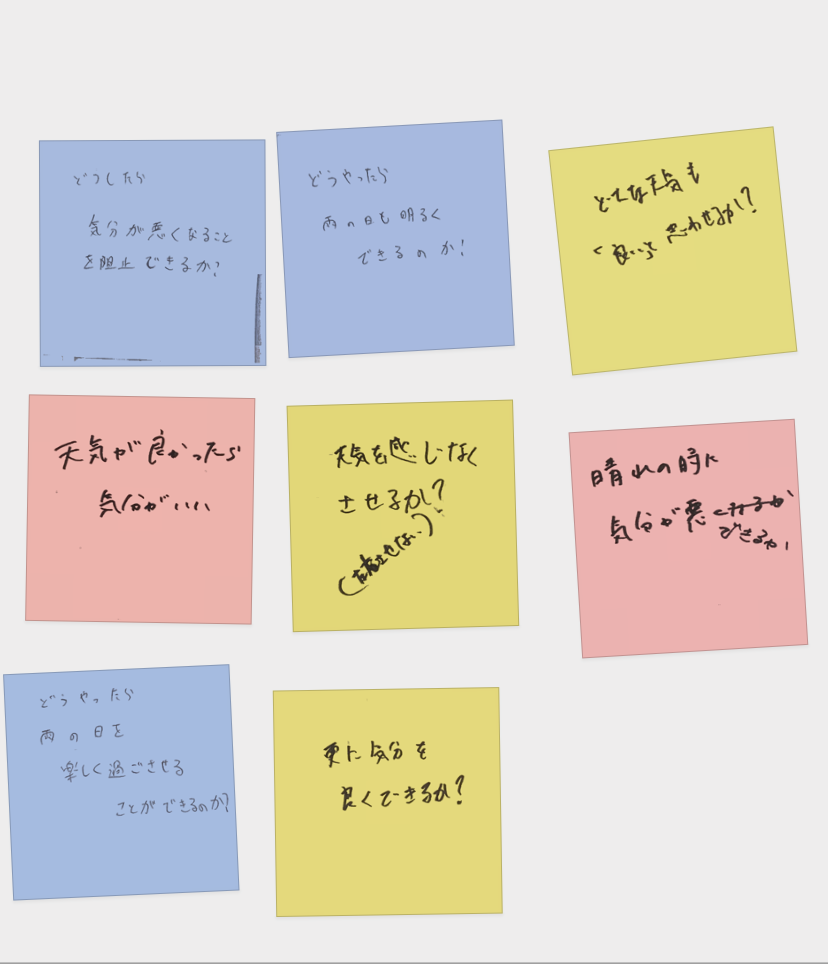 どうしたら
気分が悪くなること
を阻止できるか?
どうやったら
雨の日も明るく
できるのか!
どんな天気も
「良い」と思わせるか!?
天気が良かったら
気分がいい
天気を感じなく
させるか!?
晴れの時に
気分が悪
できるか、
どうやったら
雨の日を
楽しく過ごさせる
ことができるのか?
更に気分を
良くできるか?